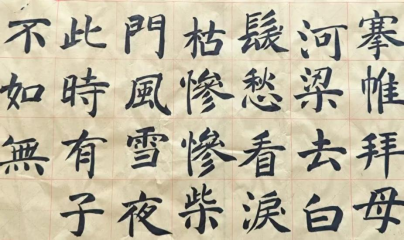 搴帷拜母
河梁去白
髮愁看淚
枯慘慘柴
門風雪夜
此時有子
不如無